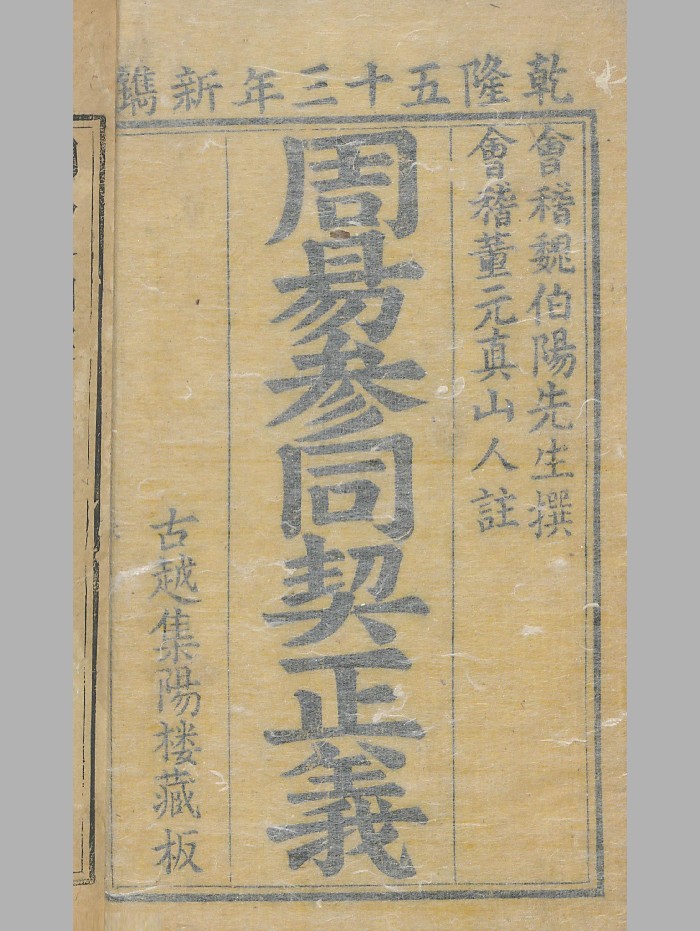 乾隆五十三年新鐫
會稽魏伯陽先生撰
會稽董元真山人註
周易參同契正義
古越集陽楼藏板